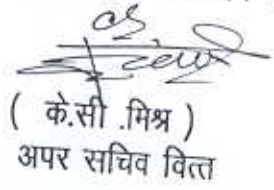 ( के.सी .मिश्र )
अपर सचिव वित्त